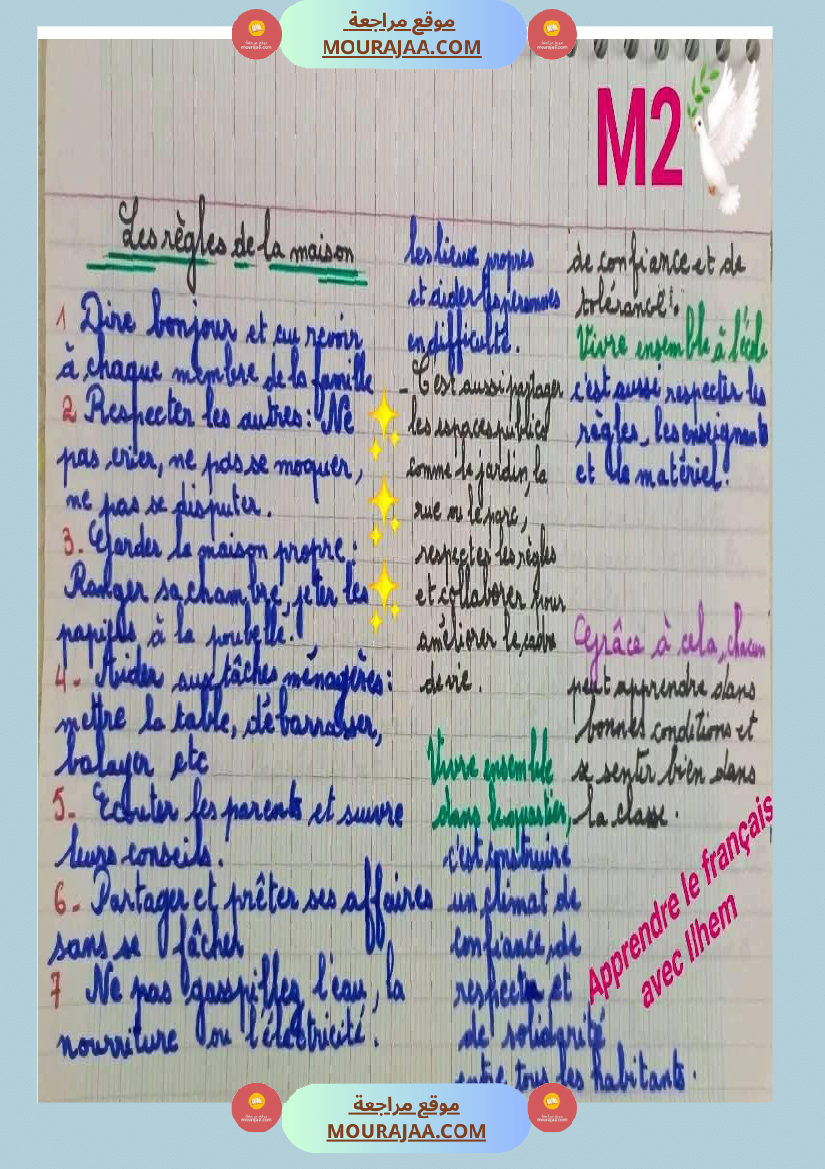 موقع مراجعة
MOURAJAA.COM
M2
Les règles de la maison
1 Dire bonjour et au revoir
à chaque membre de la famille
2 Respecter les autres : Ne
pas crier, ne pas se moquer,
ne pas se disputer.
3. Garder la maison propre :
Ranger sa chambre, jeter les
papiers à la poubelle.
4. Aider aux tâches ménagères :
mettre la table, débarrasser,
balayer etc
5. Ecouter les parents et suivre
leurs conseils.
6. Partager et prêter ses affaires
sans se fâcher
7 Ne pas gasspiller l'eau, la
nourriture ou l'électricité.
les lieux propres
et aider les personnes
en difficulté.
- C'est aussi partager
les espaces publics
comme le jardin, la
rue ou le parc,
respecter les règles
et collaborer pour
améliorer le cadre
de vie.
Vivre ensemble
dans le quartier,
c'est construire
un climat de
confiance, de
respect et
de solidarité
entre tous les habitants.
de confiance et de
tolérance.
Vivre ensemble à l'école
c'est aussi respecter les
règles, les enseignants
et le matériel.
Grâce à cela, chacun
peut apprendre dans
bonnes conditions et
se sentir bien dans
la classe.
Apprendre le français
avec Ilhem
موقع مراجعة
MOURAJAA.COM